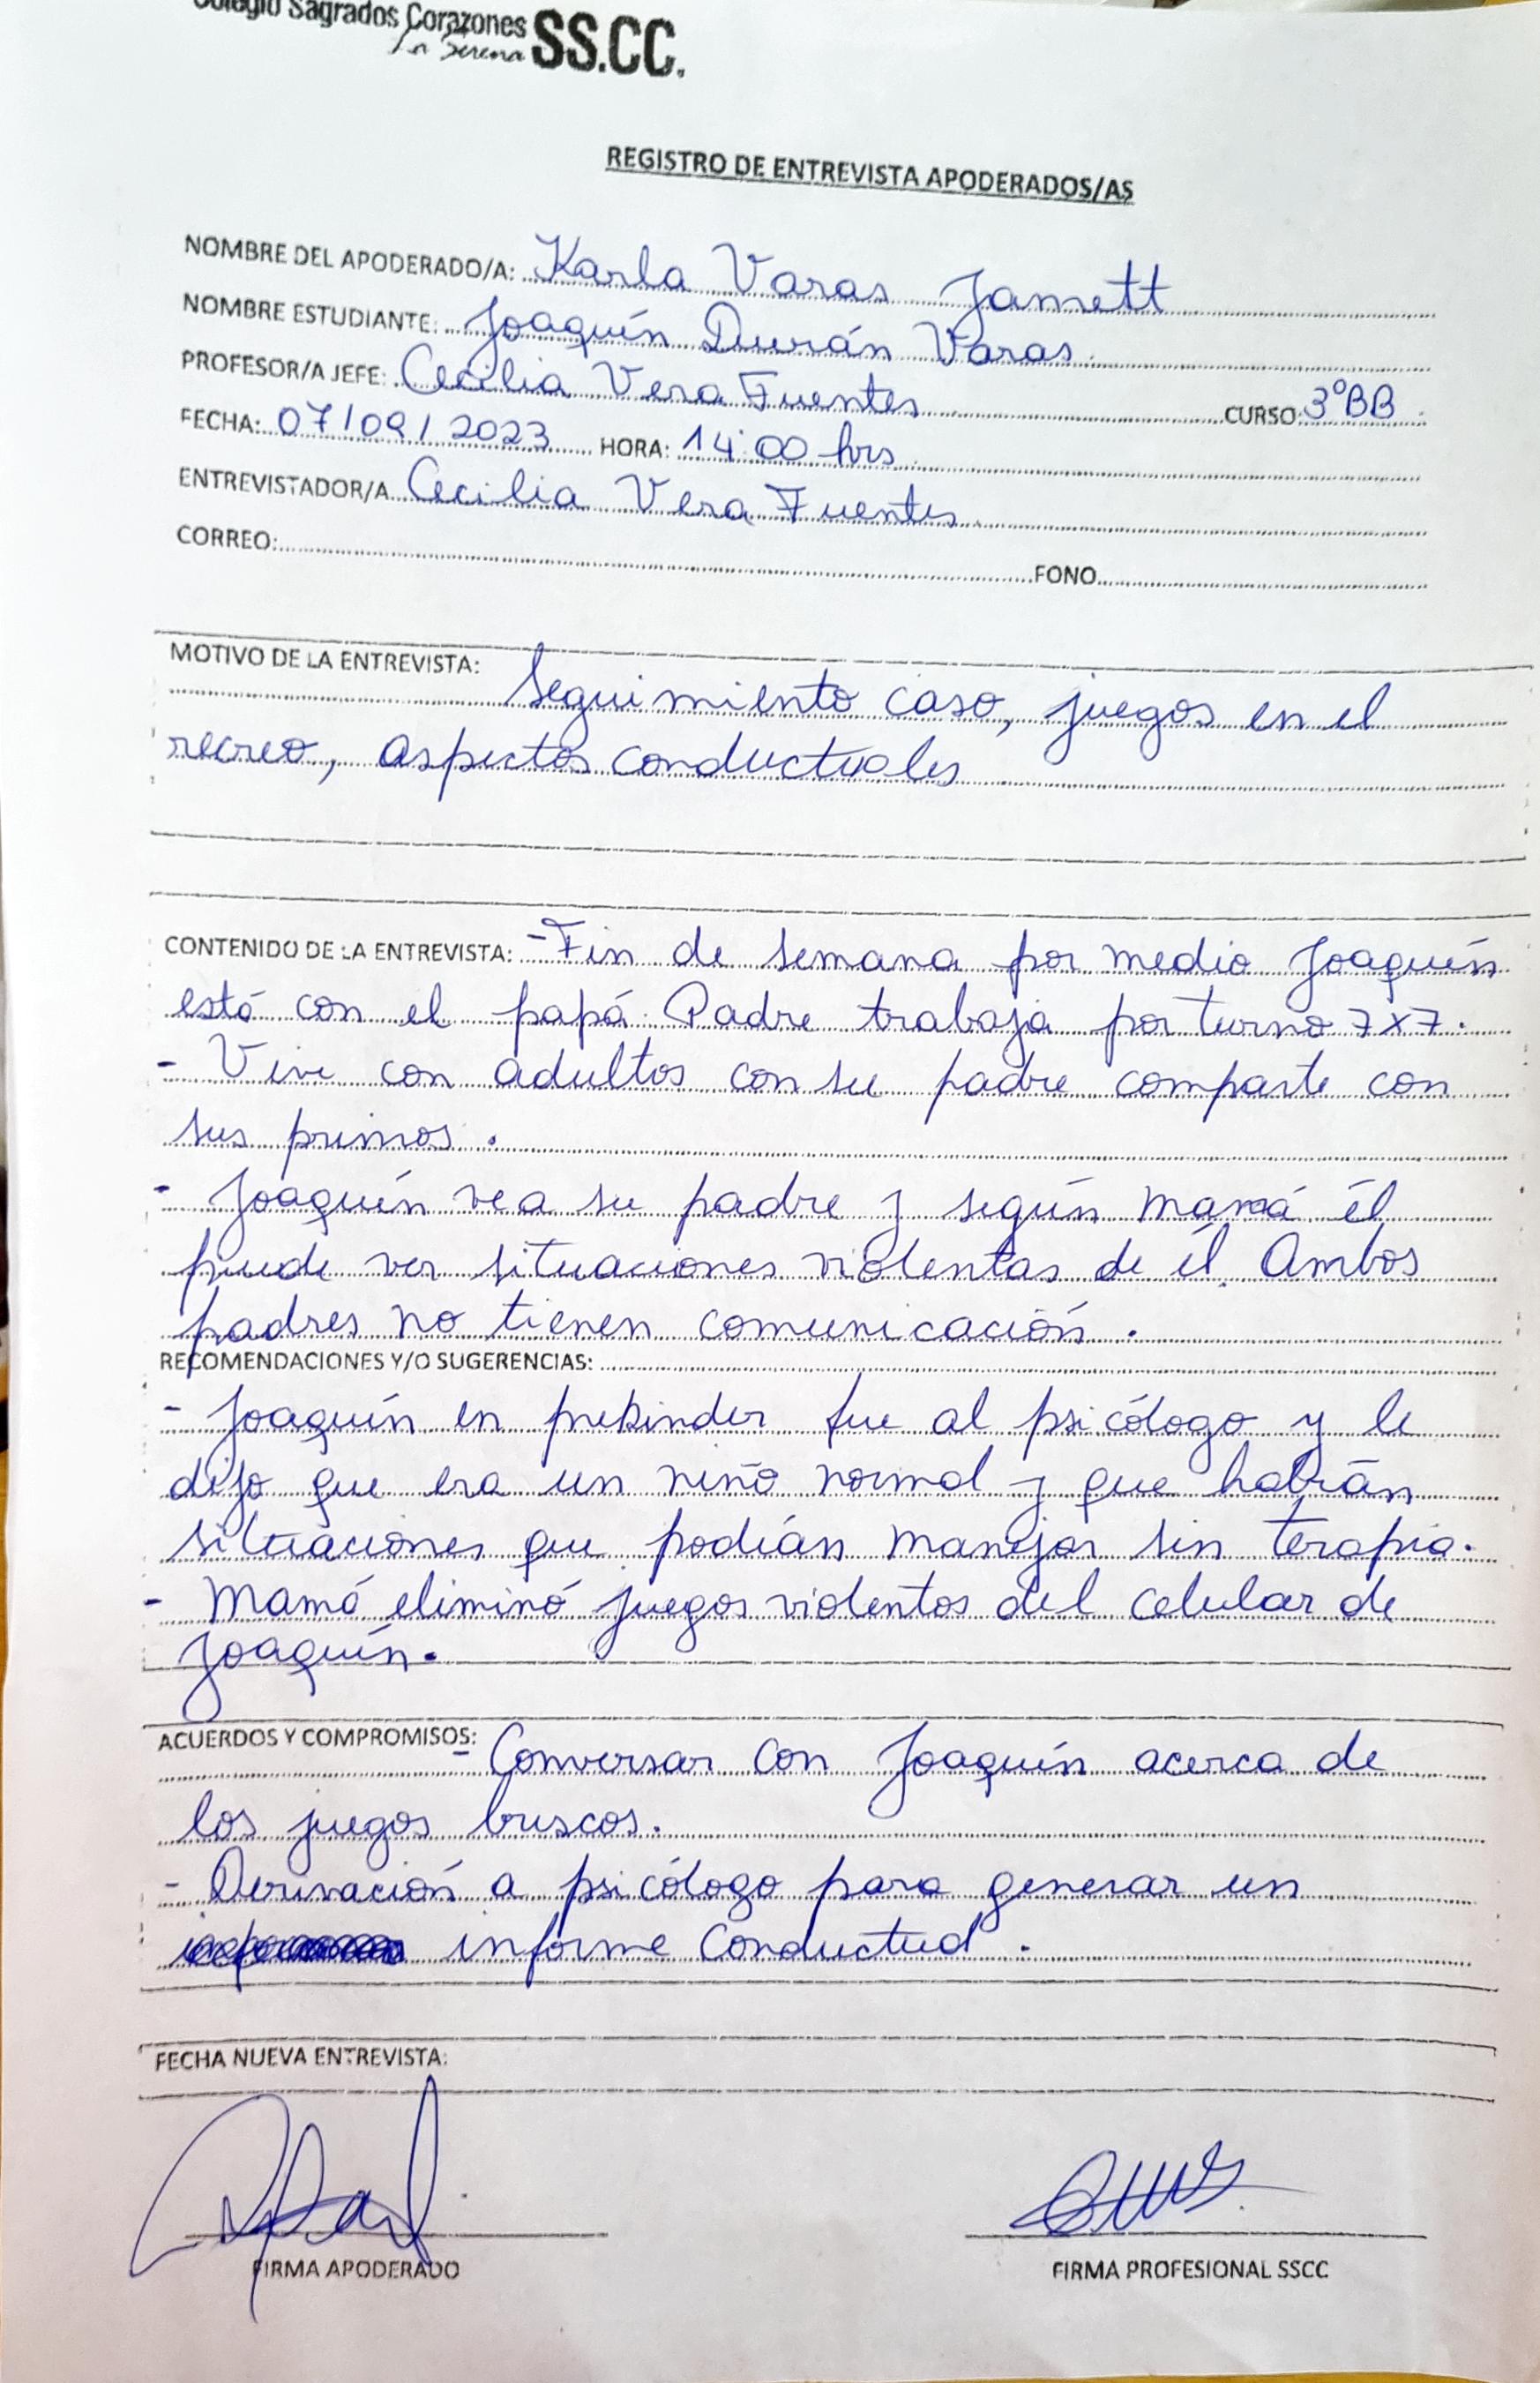 Colegio Sagrados Corazones SS.CC.
La Serena
REGISTRO DE ENTREVISTA APODERADOS/AS
NOMBRE DEL APODERADO/A: Karla Varas Jamett
NOMBRE ESTUDIANTE: Joaquín Durán Varas
PROFESOR/A JEFE: Cecilia Vera Fuentes CURSO: 3°BB
FECHA: 07/09/2023 HORA: 14:00 hrs
ENTREVISTADOR/A Cecilia Vera Fuentes
CORREO: FONO
MOTIVO DE LA ENTREVISTA:
Seguimiento caso, juegos en el
recreo, aspectos conductuales
CONTENIDO DE LA ENTREVISTA: - Fin de semana por medio Joaquín
está con el papá. Padre trabaja por turno 7x7.
- Vive con adultos con su padre comparte con
sus primos.
- Joaquín ve a su padre y según mamá él
puede ver situaciones violentas de él. Ambos
padres no tienen comunicación.
RECOMENDACIONES Y/O SUGERENCIAS:
- Joaquín en prekinder fue al psicólogo y le
dijo que era un niño normal y que habían
situaciones que podían manejar sin terapia.
- Mamá eliminó juegos violentos del celular de
Joaquín.
ACUERDOS Y COMPROMISOS:
- Conversar con Joaquín acerca de
los juegos bruscos.
- Derivación a psicólogo para generar un
informe conductual.
FECHA NUEVA ENTREVISTA:
FIRMA APODERADO FIRMA PROFESIONAL SSCC